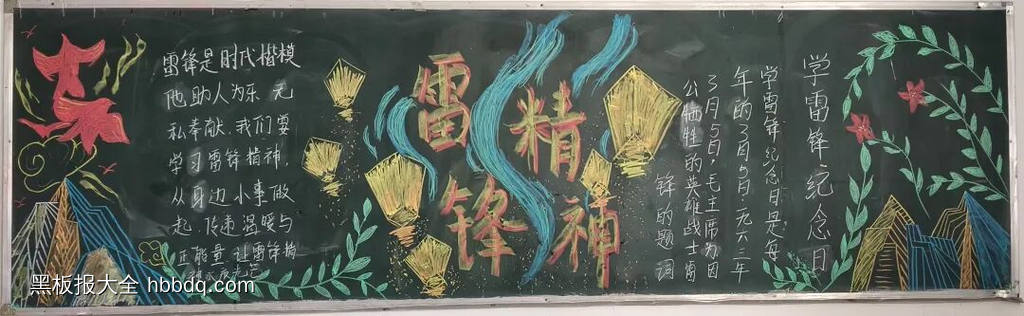 雷锋是时代楷模
他助人为乐 无
私奉献、我们要
学习雷锋精神.
从身边小事做
起.传递温暖与
正能量 让雷锋精
雷锋
精神
学雷锋纪念日
学雷锋纪念日是每
年的3月5日.一九六三年
3月5日,毛主席为因
公牺牲的英雄战士雷
锋的题词
黑板报大全 hbbdq.com